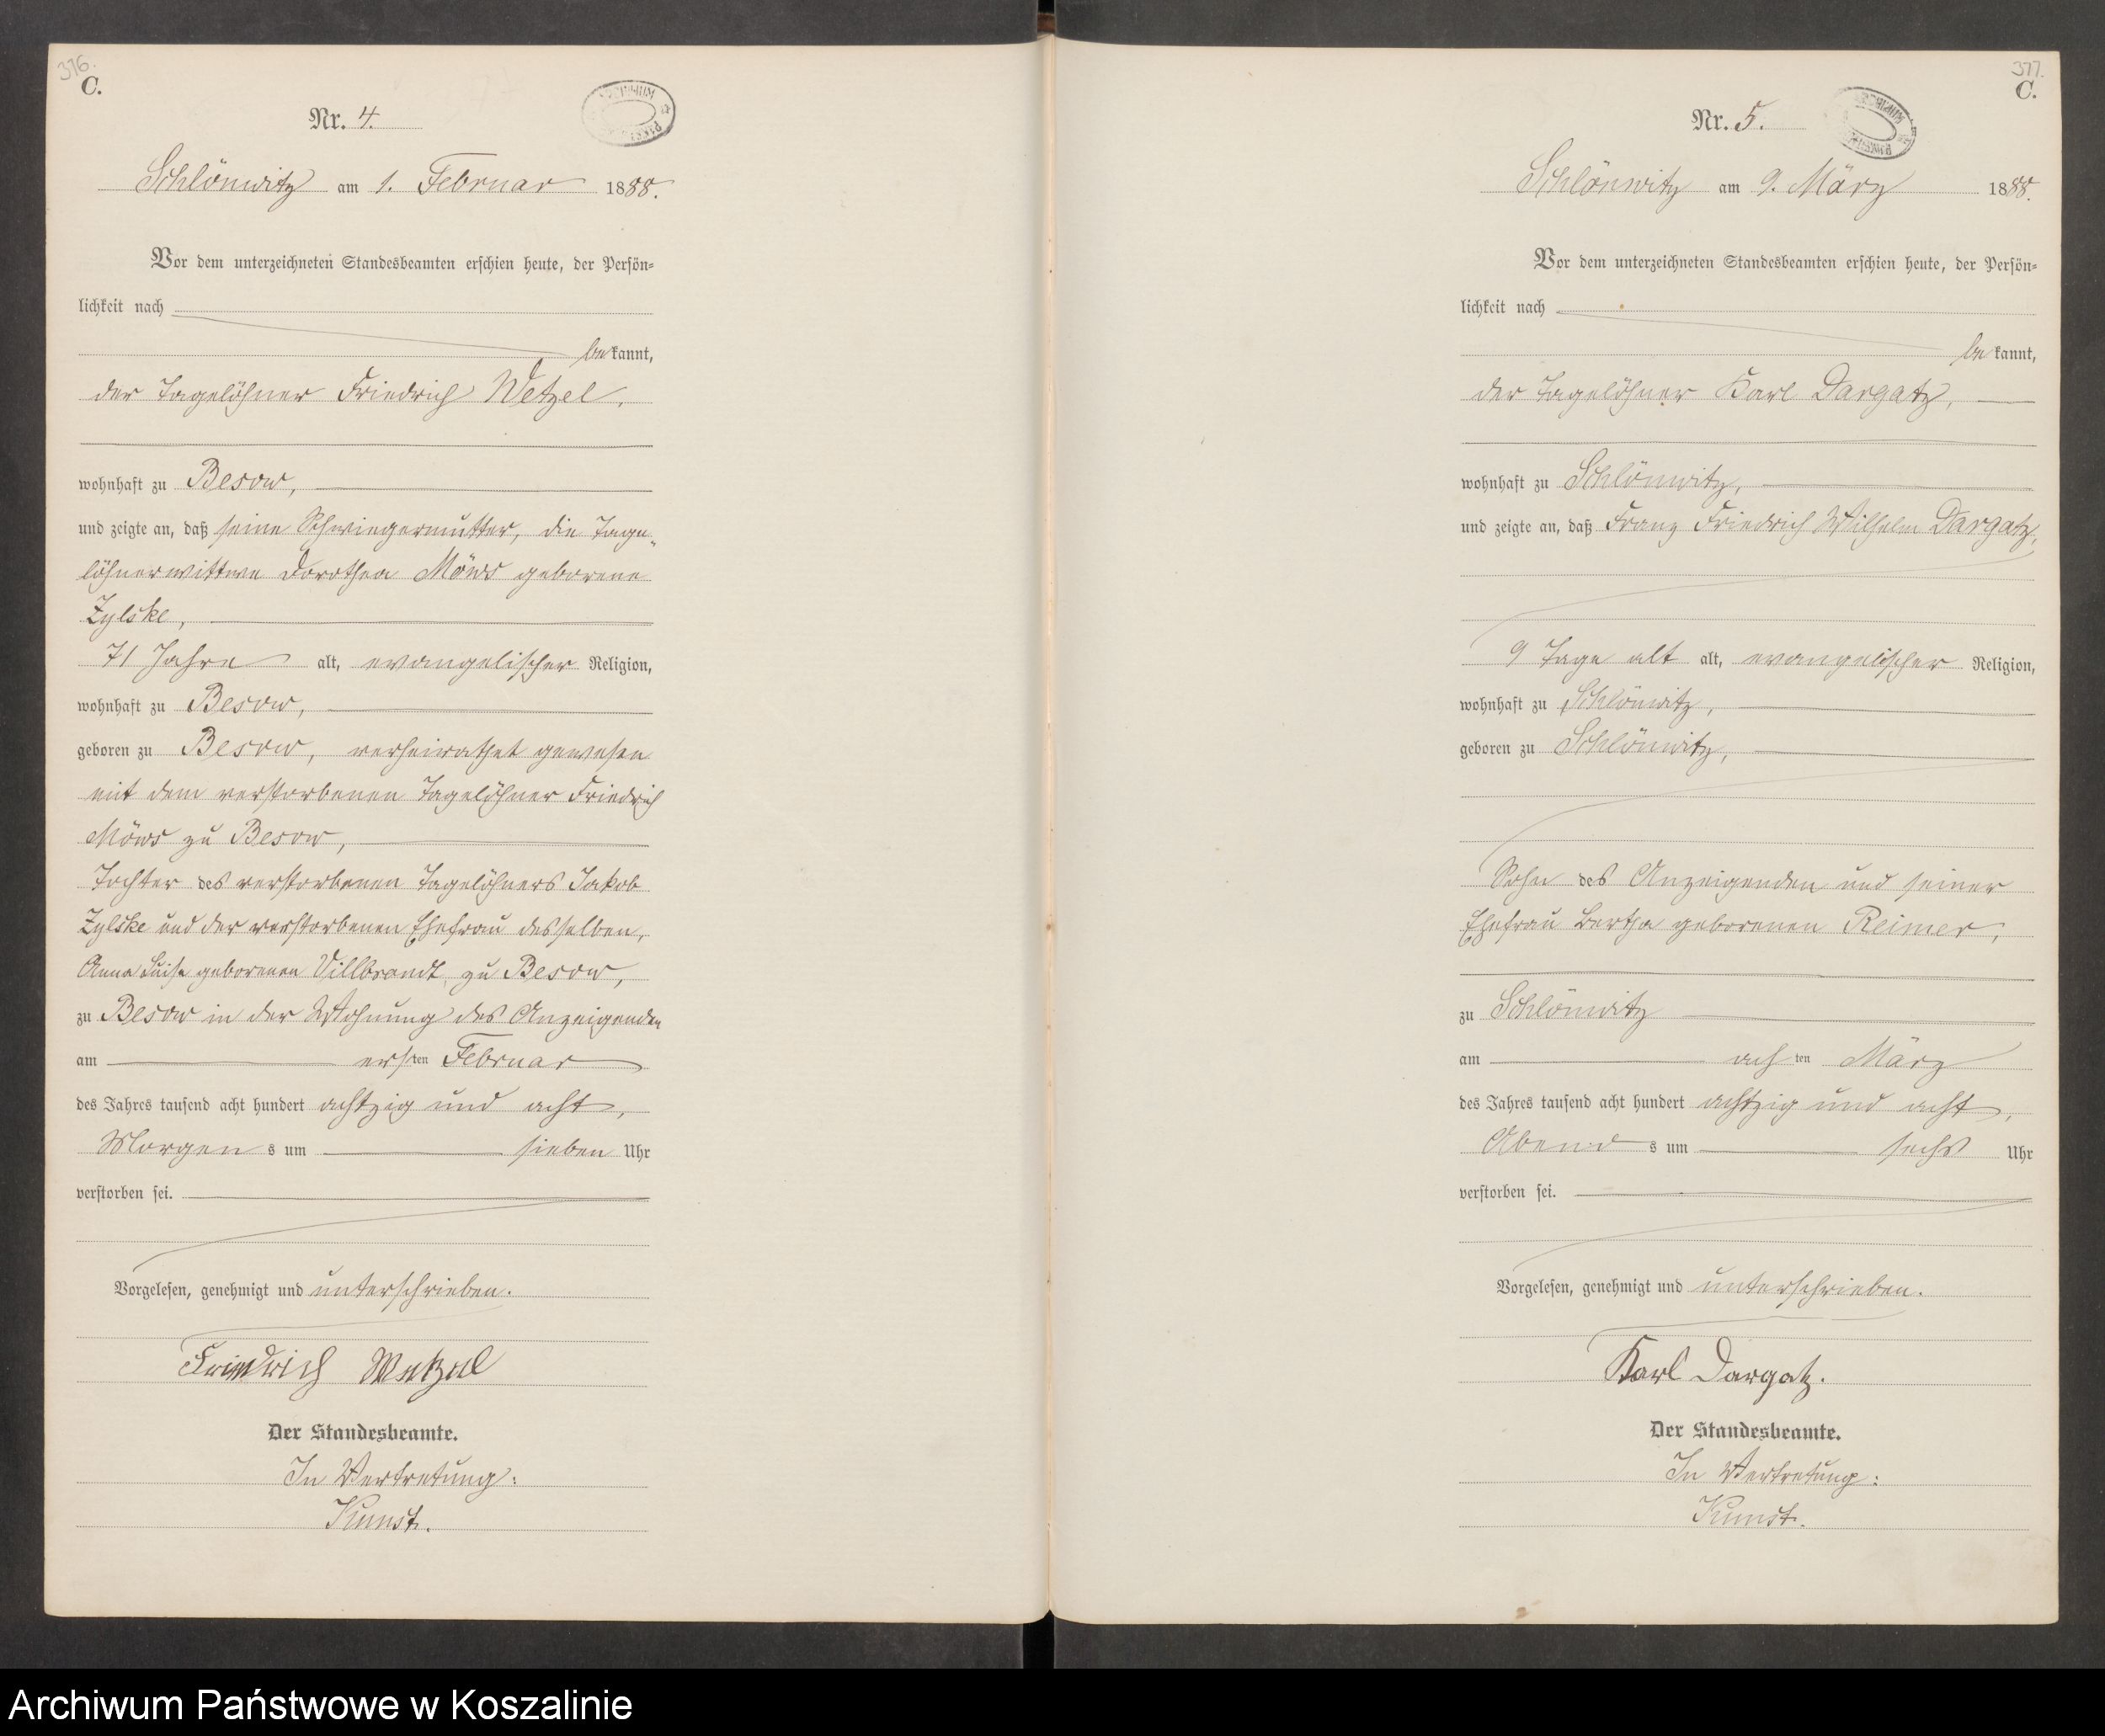 376.
C.
Nr. 4.
Schlönwitz am 1. Februar 1888.
Vor dem unterzeichneten Standesbeamten erschien heute, der Persön-
lichkeit nach
bekannt,
der Tagelöhner Friedrich Wetzel,
wohnhaft zu Besow,
und zeigte an, daß seine Schwiegermutter, die Tage-
löhnerwittwe Dorothea Möws geborene
Zylske,
71 Jahre alt, evangelischer Religion,
wohnhaft zu Besow,
geboren zu Besow, verheirathet gewesen
mit dem verstorbenen Tagelöhner Friedrich
Möws zu Besow,
Tochter des verstorbenen Tagelöhners Jakob
Zylske und der verstorbenen Ehefrau desselben,
Anna Luise geborenen Villbrandt, zu Besow,
zu Besow in der Wohnung des Anzeigenden
am ersten Februar
des Jahres tausend acht hundert achtzig und acht,
Morgens um sieben Uhr
verstorben sei.
Vorgelesen, genehmigt und unterschrieben.
Friedrich Wetzel
Der Standesbeamte.
In Vertretung:
Kunst.
377.
C.
Nr. 5.
Schlönwitz am 9. März 1888.
Vor dem unterzeichneten Standesbeamten erschien heute, der Persön-
lichkeit nach
bekannt,
der Tagelöhner Karl Dargatz,
wohnhaft zu Schlönwitz,
und zeigte an, daß Franz Friedrich Wilhelm Dargatz,
9 Tage alt alt, evangelischer Religion,
wohnhaft zu Schlönwitz,
geboren zu Schlönwitz,
Sohn des Anzeigenden und seiner
Ehefrau Bertha geborenen Reimer,
zu Schlönwitz
am achten März
des Jahres tausend acht hundert achtzig und acht,
Abends um sechs Uhr
verstorben sei.
Vorgelesen, genehmigt und unterschrieben.
Karl Dargatz.
Der Standesbeamte.
In Vertretung:
Kunst.
Archiwum Państwowe w Koszalinie